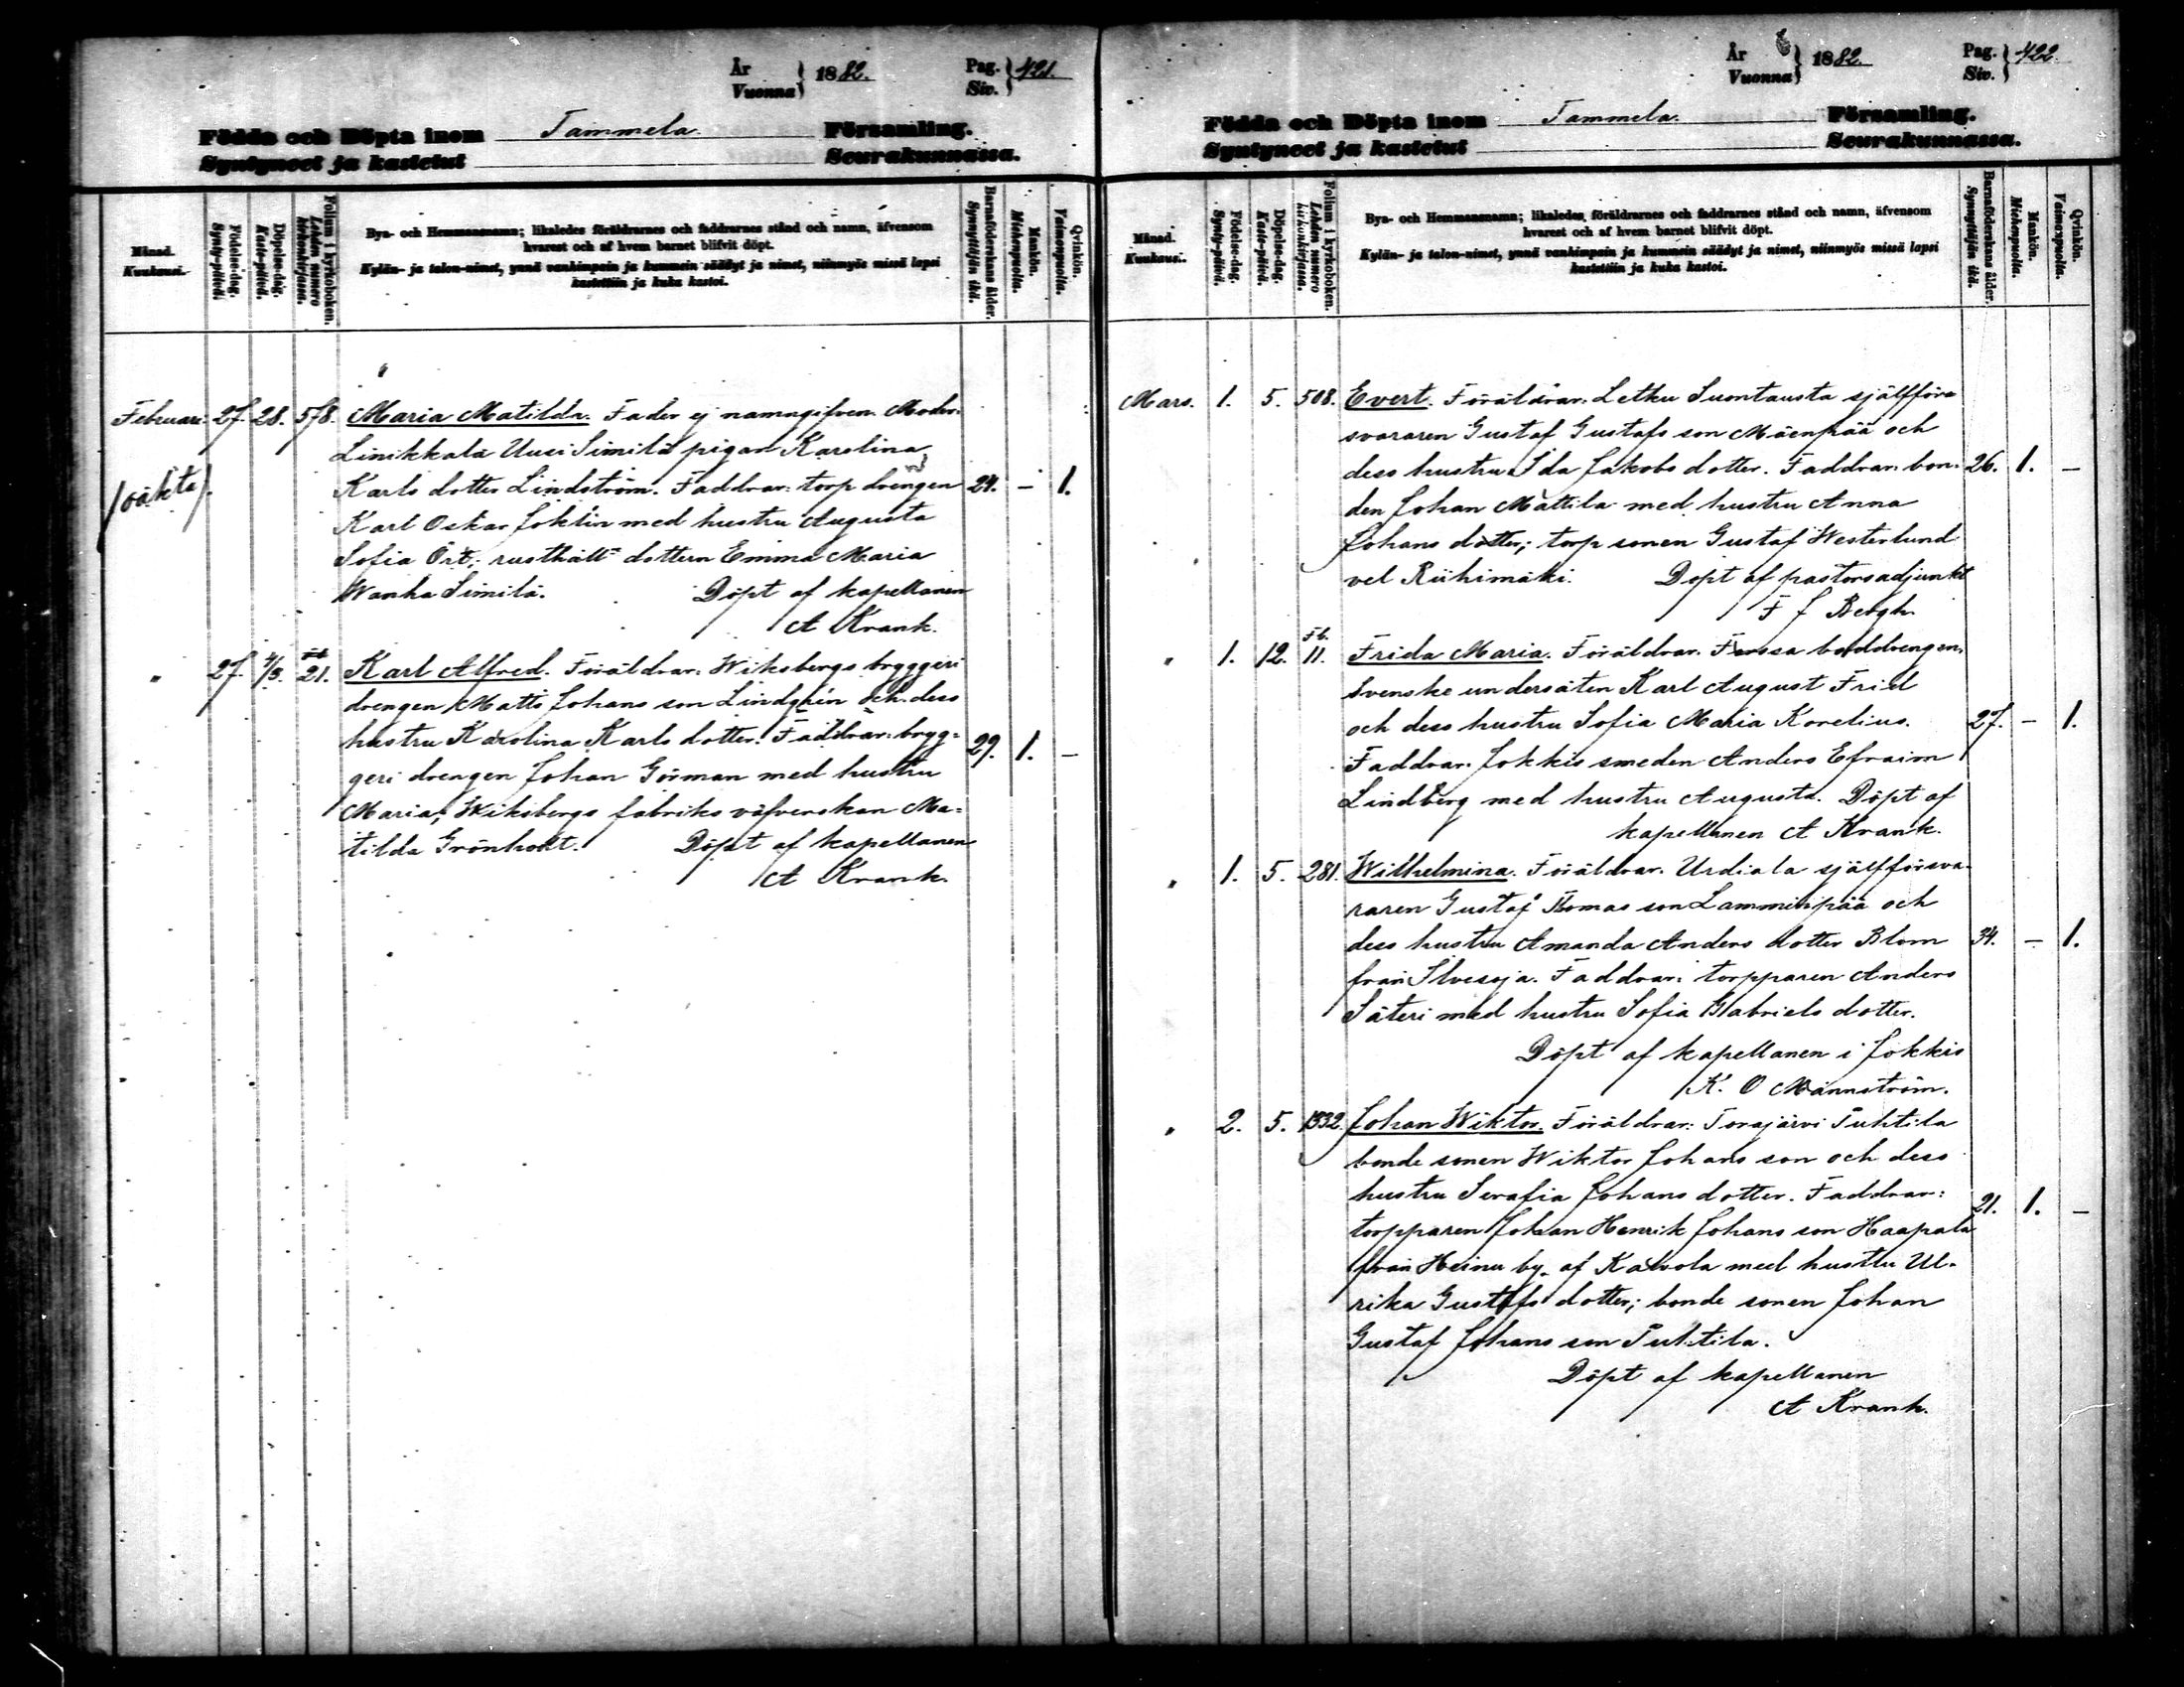 År
Vuonna } 1882.
Pag.
Siv. } 421.
Födda och Döpta inom Tammela Församling.
Syntyneet ja kastetut Seurakunnassa.
Månad.
Kuukausi.
Födelse-dag.
Synty-päivä.
Döpelse-dag.
Kaste-päivä.
Folium i kyrkoboken.
Lehden numero
kirkonkirjassa.
Bya- och Hemmansnamn; likaledes föräldrarnes och faddrarnes stånd och namn, äfvensom
hvarest och af hvem barnet blifvit döpt.
Kylän- ja talon-nimet, ynnä vanhimpain ja kummein säädyt ja nimet, niinmyös missä lapsi
kastettiin ja kuka kastoi.
Barnaföderskans ålder.
Synnyttäjän ikä.
Mankön.
Miehenpuolia.
Qvinkön.
Vaimonpuolia.
Februari. 27. 28. 578. Maria Matilda. Fader ej namngifven. Moder:
Linikkala Uusi Simila pigan Karolina
/oäkta/. Karls dotter Lindström. Faddrar: torp drengen 24. — 1.
Karl Oskar Joklin med hustru Augusta
Sofia Ört; rusthåll= dottern Emma Maria
Wanha Simila. Döpt af kapellanen
A Krank.
" 27. 4/3. 21. Karl Alfred. Föräldrar: Wiksbergs bryggeri
drengen Matts Johans son Lindgrén och dess
hustru Karolina Karls dotter. Faddrar: bryg= 29. 1. —
geri drengen Johan Görman med hustru
Maria; Wiksbergs fabriks väfverskan Ma=
tilda Grönholt. Döpt af kapellanen
A Krank.
År
Vuonna } 1882.
Pag.
Siv. } 422.
Födda och Döpta inom Tammela Församling.
Syntyneet ja kastetut Seurakunnassa.
Månad.
Kuukausi.
Födelse-dag.
Synty-päivä.
Döpelse-dag.
Kaste-päivä.
Folium i kyrkoboken.
Lehden numero
kirkonkirjassa.
Bya- och Hemmansnamn; likaledes föräldrarnes och faddrarnes stånd och namn, äfvensom
hvarest och af hvem barnet blifvit döpt.
Kylän- ja talon-nimet, ynnä vanhimpain ja kummein säädyt ja nimet, niinmyös missä lapsi
kastettiin ja kuka kastoi.
Barnaföderskans ålder.
Synnyttäjän ikä.
Mankön.
Miehenpuolia.
Qvinkön.
Vaimonpuolia.
Mars. 1. 5. 508. Evert. Föräldrar: Letku Suontausta själfför=
svararen Gustaf Gustafs son Mäenpää och
dess hustru Ida Jakobs dotter. Faddrar: bon= 26. 1. —
den Johan Mattila med hustru Anna
Johans dotter; torp sonen Gustaf Westerlund
vel Riihimäki. Döpt af pastorsadjunkt
F J Bergh.
" 1. 12. Fb. 11. Frida Maria. Föräldrar: Forssa boddrengen,
Svenske undersåten Karl August Frid
och dess hustru Sofia Maria Korelius. 27. — 1.
Faddrar: Jokkis smeden Anders Efraim
Lindberg med hustru Augusta. Döpt af
kapellanen A Krank.
" 1. 5. 281. Wilhelmina. Föräldrar: Urdiala själfförsva=
raren Gustaf Tomas son Lamminpää och
dess hustru Amanda Anders dotter Blom 34. — 1.
från Ilvesoja. Faddrar: torpparen Anders
Säteri med hustru Sofia Gabriels dotter.
Döpt af kapellanen i Jokkis
K. O Männström.
" 2. 5. 1332. Johan Wiktor. Föräldrar: Torajärvi Tuhtila
bonde sonen Wiktor Johans son och dess
hustru Serafia Johans dotter. Faddrar: 21. 1. —
torpparen Johan Henrik Johans son Haapala
från Heinu by af Kalvola med hustru Ul=
rika Gustafs dotter; bonde sonen Johan
Gustaf Johans son Tuhtila.
Döpt af kapellanen
A Krank.